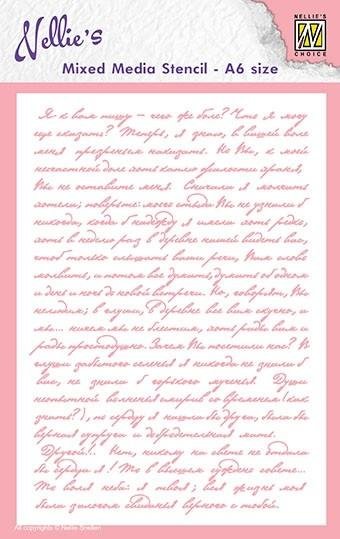 Nellie's
NELLIE'S
N
CHOICE
Mixed Media Stencil - A6 size
Я к вам пишу – чего же боле? Что я могу
еще сказать? Теперь, я знаю, в вашей воле
меня презреньем наказать. Но Вы, к моей
несчастной доле хоть каплю жалости храня,
Вы не оставите меня. Сначала я молчать
хотела; поверьте: моего стыда Вы не узнали б
никогда, когда б надежду я имела хоть редко,
хоть в неделю раз в деревне нашей видеть вас,
чтоб только слышать ваши речи, Вам слово
молвить, и потом все думать, думать об одном
и день и ночь до новой встречи. Но, говорят, Вы
нелюдим; в глуши, в деревне все вам скучно, а
мы... ничем мы не блестим, хоть рады вам и
рады простодушно. Зачем Вы посетили нас? В
глуши забытого селенья я никогда не знала б
вас, не знала б горького мученья. Души
неопытной волненья смирив со временем (как
знать?), по сердцу я нашла бы друга, была бы
верная супруга и добродетельная мать.
Другой!.. Нет, никому на свете не отдала
бы сердца я! То в вышнем суждено совете...
То воля неба: я твоя; вся жизнь моя
была залогом свиданья верного с тобой.
All copyrights © Nellie Snellen